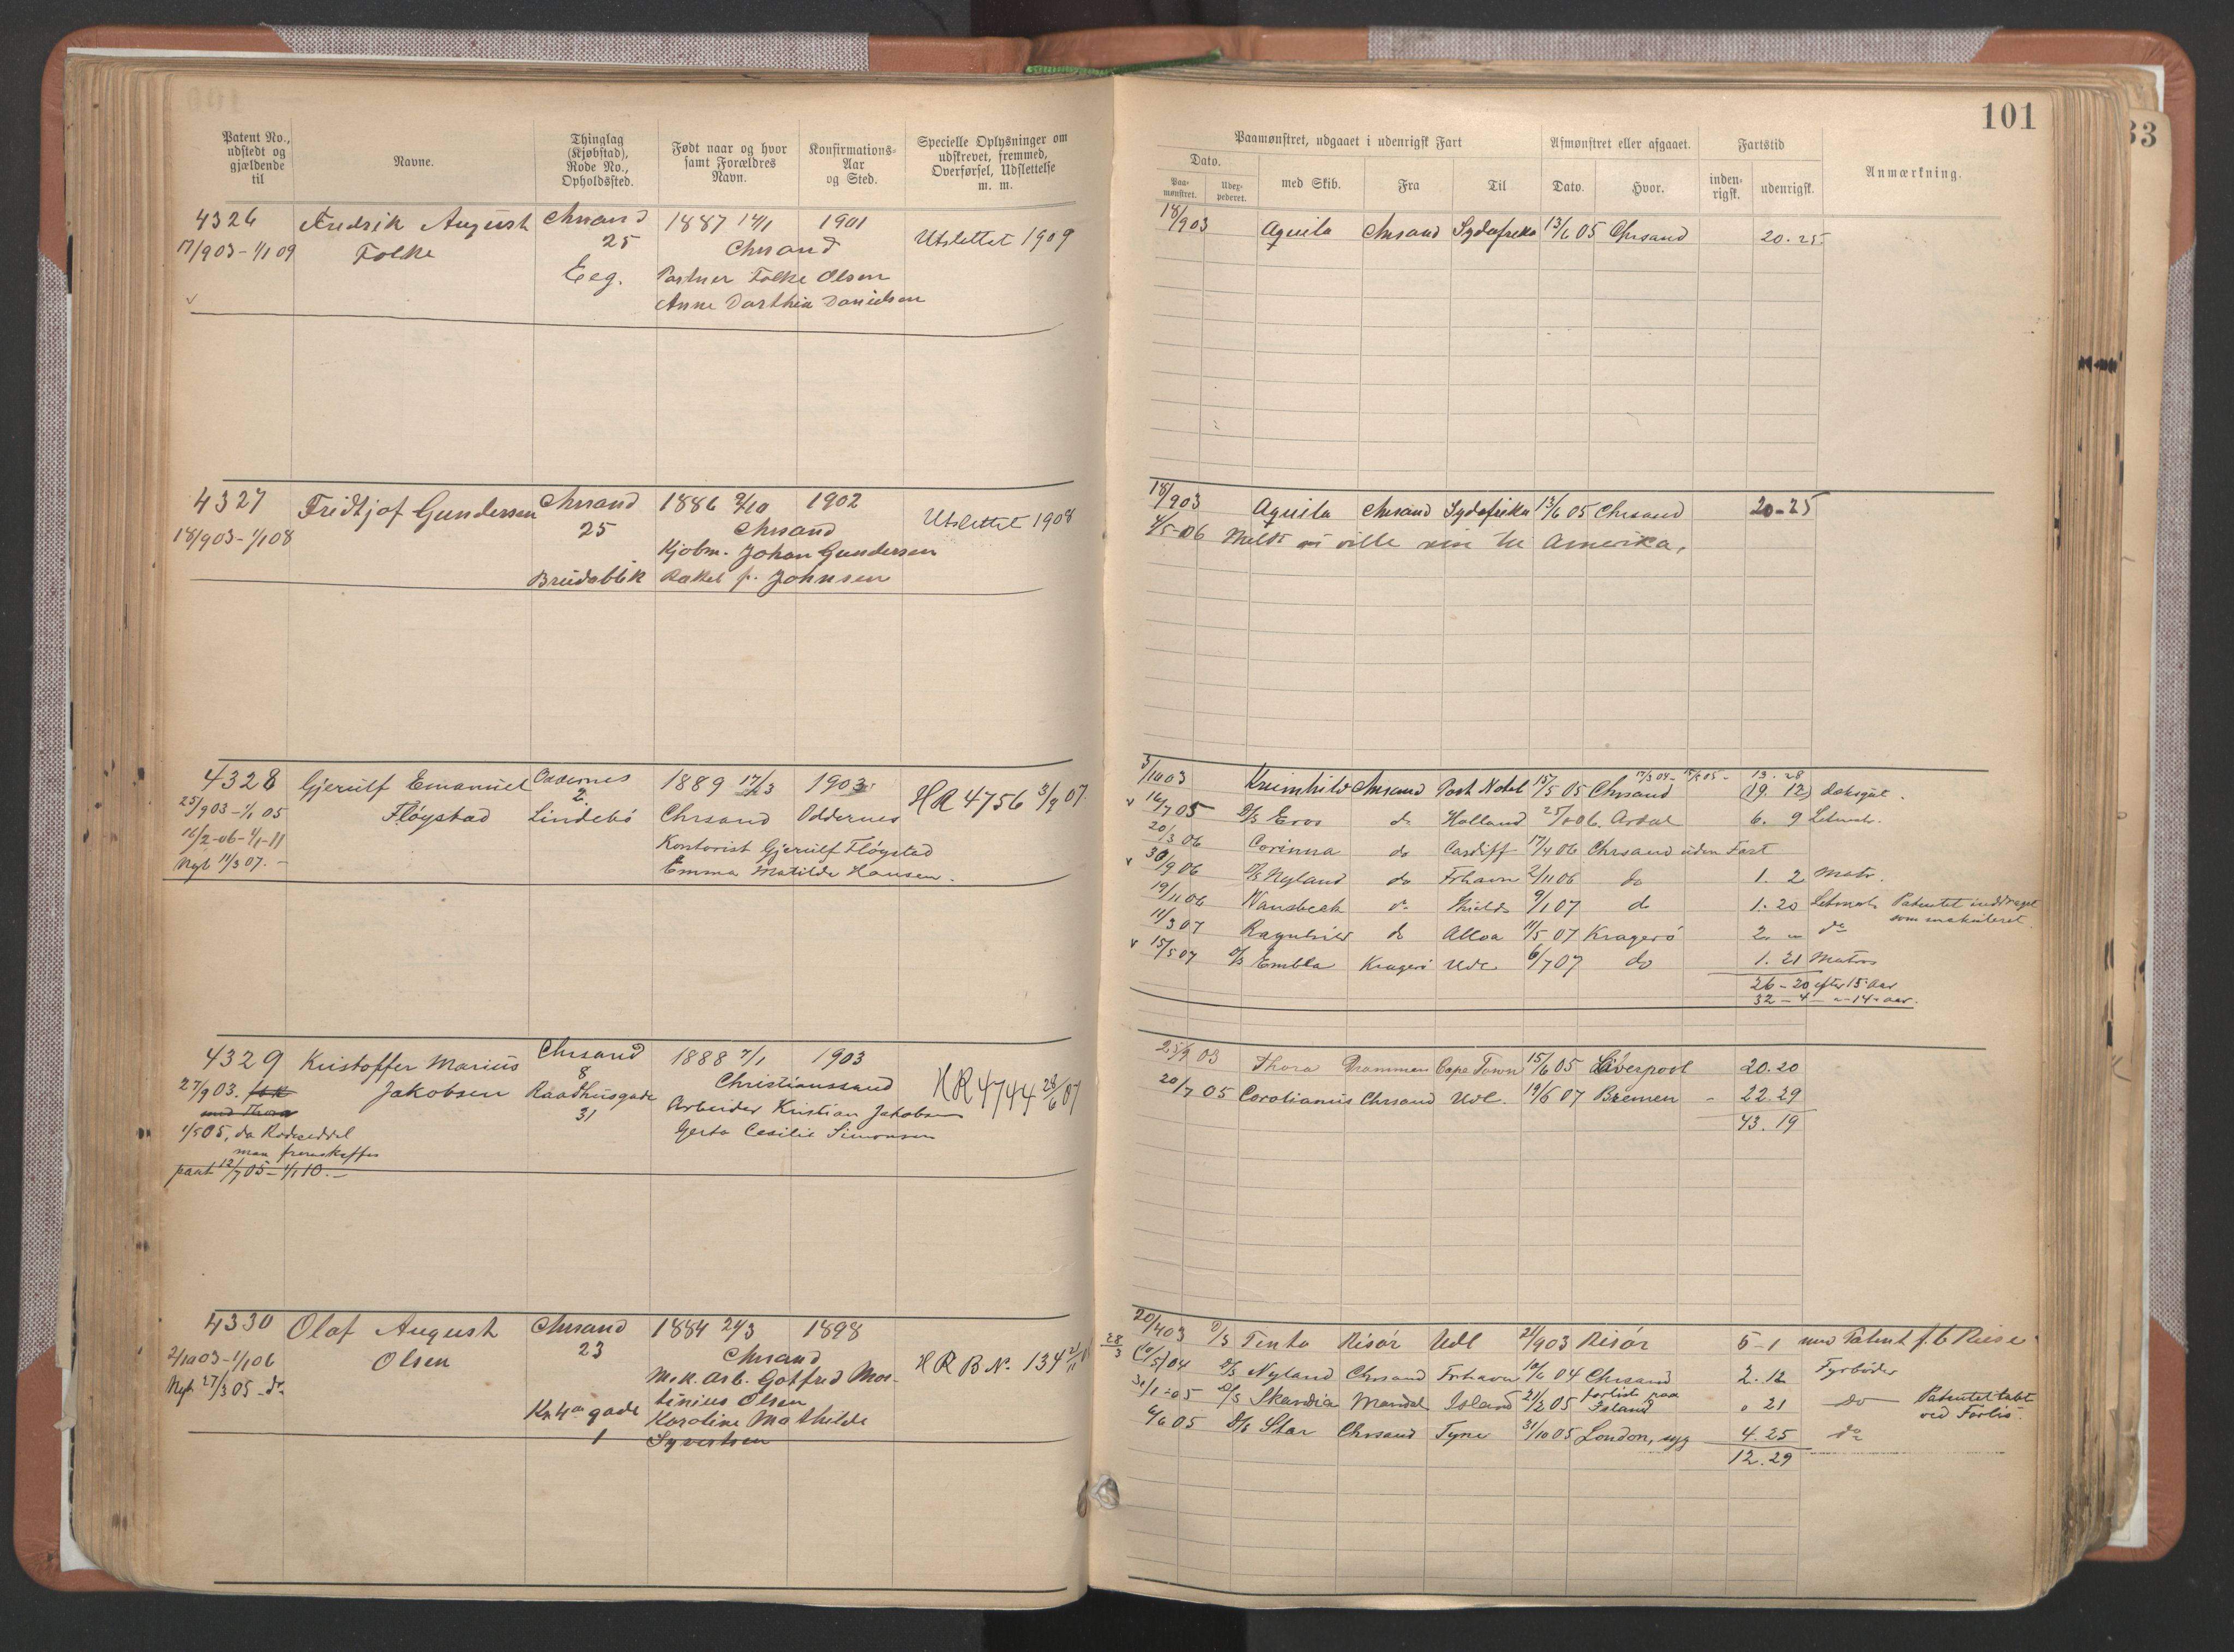 101
33
Patent No., udstedt og gjældende til
Navne.
Thinglag (Kjøbstad), Rode No., Opholdssted.
Født naar og hvor samt Forældres Navn.
Konfirmations-Aar og Sted.
Specielle Oplysninger om udskrevet, fremmed, Overførsel, Udslettelse m. m.
Paamønstret, udgaaet i udenrigsk Fart
Afmønstret eller afgaaet.
Fartstid
Dato.
Paa-mønstret.
Uder-pederet.
med Skib.
Fra
Til
Dato.
Hvor.
inden-rigsk.
udenrigsk.
Anmærkning.
4326 Fredrik August Chrsand 1887 14/1 1901
17/903-1/1 09 Folke 25 Chrsand Utslettet 1909
Eeg. Partner Folke Olsen
Anne Dorthea Danielsen
18/903 Aquila Chrsand Sydafrika 13/6 05 Chrsand 20-25
4327 Fridtjof Gundersen Chrsand 1886 2/10 1902
18/903-1/1 08 25 Chrsand Utslettet 1908
Kjøbm. Johan Gundersen
Breidablik Rakel f. Johnsen
18/903 Aquila Chrsand Sydafrika 13/6 05 Chrsand 20-25
4/5-06 Meldt ville reise til Amerika.
4328 Gjerulf Emanuel Oddernes 1889 17/3 1903
25/903-1/1 05 Fløystad 2 Lindebö Chrsand Oddernes HR 4756 3/9 07.
16/2-06-1/1-11 Kontorist Gjerulf Fløystad
Nyt 11/3 07. - Emma Matilde Hansen.
3/10 03 Kriemhild Chrsand Port Natal 15/5 05 Chrsand 17/3 04 - 15/5 05 - 13. 28
(19. 12) daksgut.
16/7 05 D/S Eros do Holland 25/1 06. Ardal 6. 9
20/3 06 Corinna do Cardiff 17/4 06 Chrsand uden Fart
30/9 06 D/S Nyland do Frhavn 2/11 06 do 1. 2 Matr.
19/11 06 Wansbeck do Shields 9/1 07 do 1. 20 Patentet inddraget
som makuleret.
11/3 07 Ragnhild do Alloa 11/5 07 Kragerö 2. " do
15/5 07 D/S Embla Kragerö Udl. 6/7 07 do 1. 21 Matros
26-20 efter 15 Aar
32-4 - " - 14 - aar.
4329 Kristoffer Marius Chrsand 1888 7/1 1903
27/903. Jakobsen 8 Christianssand HR 4744 28/6 07
med Thora Raadhusgade Arbeider Kristian Jakobsen
1/5 05, da Rodeseddel 31 Gerta Cecilie Simonsen
maa fremskaffes
pant 12/7 05-1/1 10.-
25/9 03 Thora Drammen Cape Town 15/6 05 Liverpool 20.20
20/7 05 Carolianus Chrsand Udl. 19/6 07 Bremen - 22.29
43.19
4330 Olaf August Chrsand 1884 24/3 1898
2/10 03-1/1 06 Olsen 23 Chrsand HR B No. 134
Nyt 27/3 05-do Mek. Arb. Gotfred Mar-
tinius Olsen
Kr 4des gade Karoline Mathilde
1 Syvertsen
20/4 03 D/S Tento Risör Udl 21/9 03 Risör 5-1 med Patent f. b Reise
28/3 (10/5) 04 D/S Nyland Chrsand Frhavn 10/6 04 Chrsand 2.12 Fyrböder
31/1-05 D/S Skandia Mandal Island 21/2 05 forlist paa Island " 21 do Patentet tabt
ved Forlis.
6/6 05 D/S Star Chrsand Tyne 31/10 05 London, syg 4.25 do
12.29